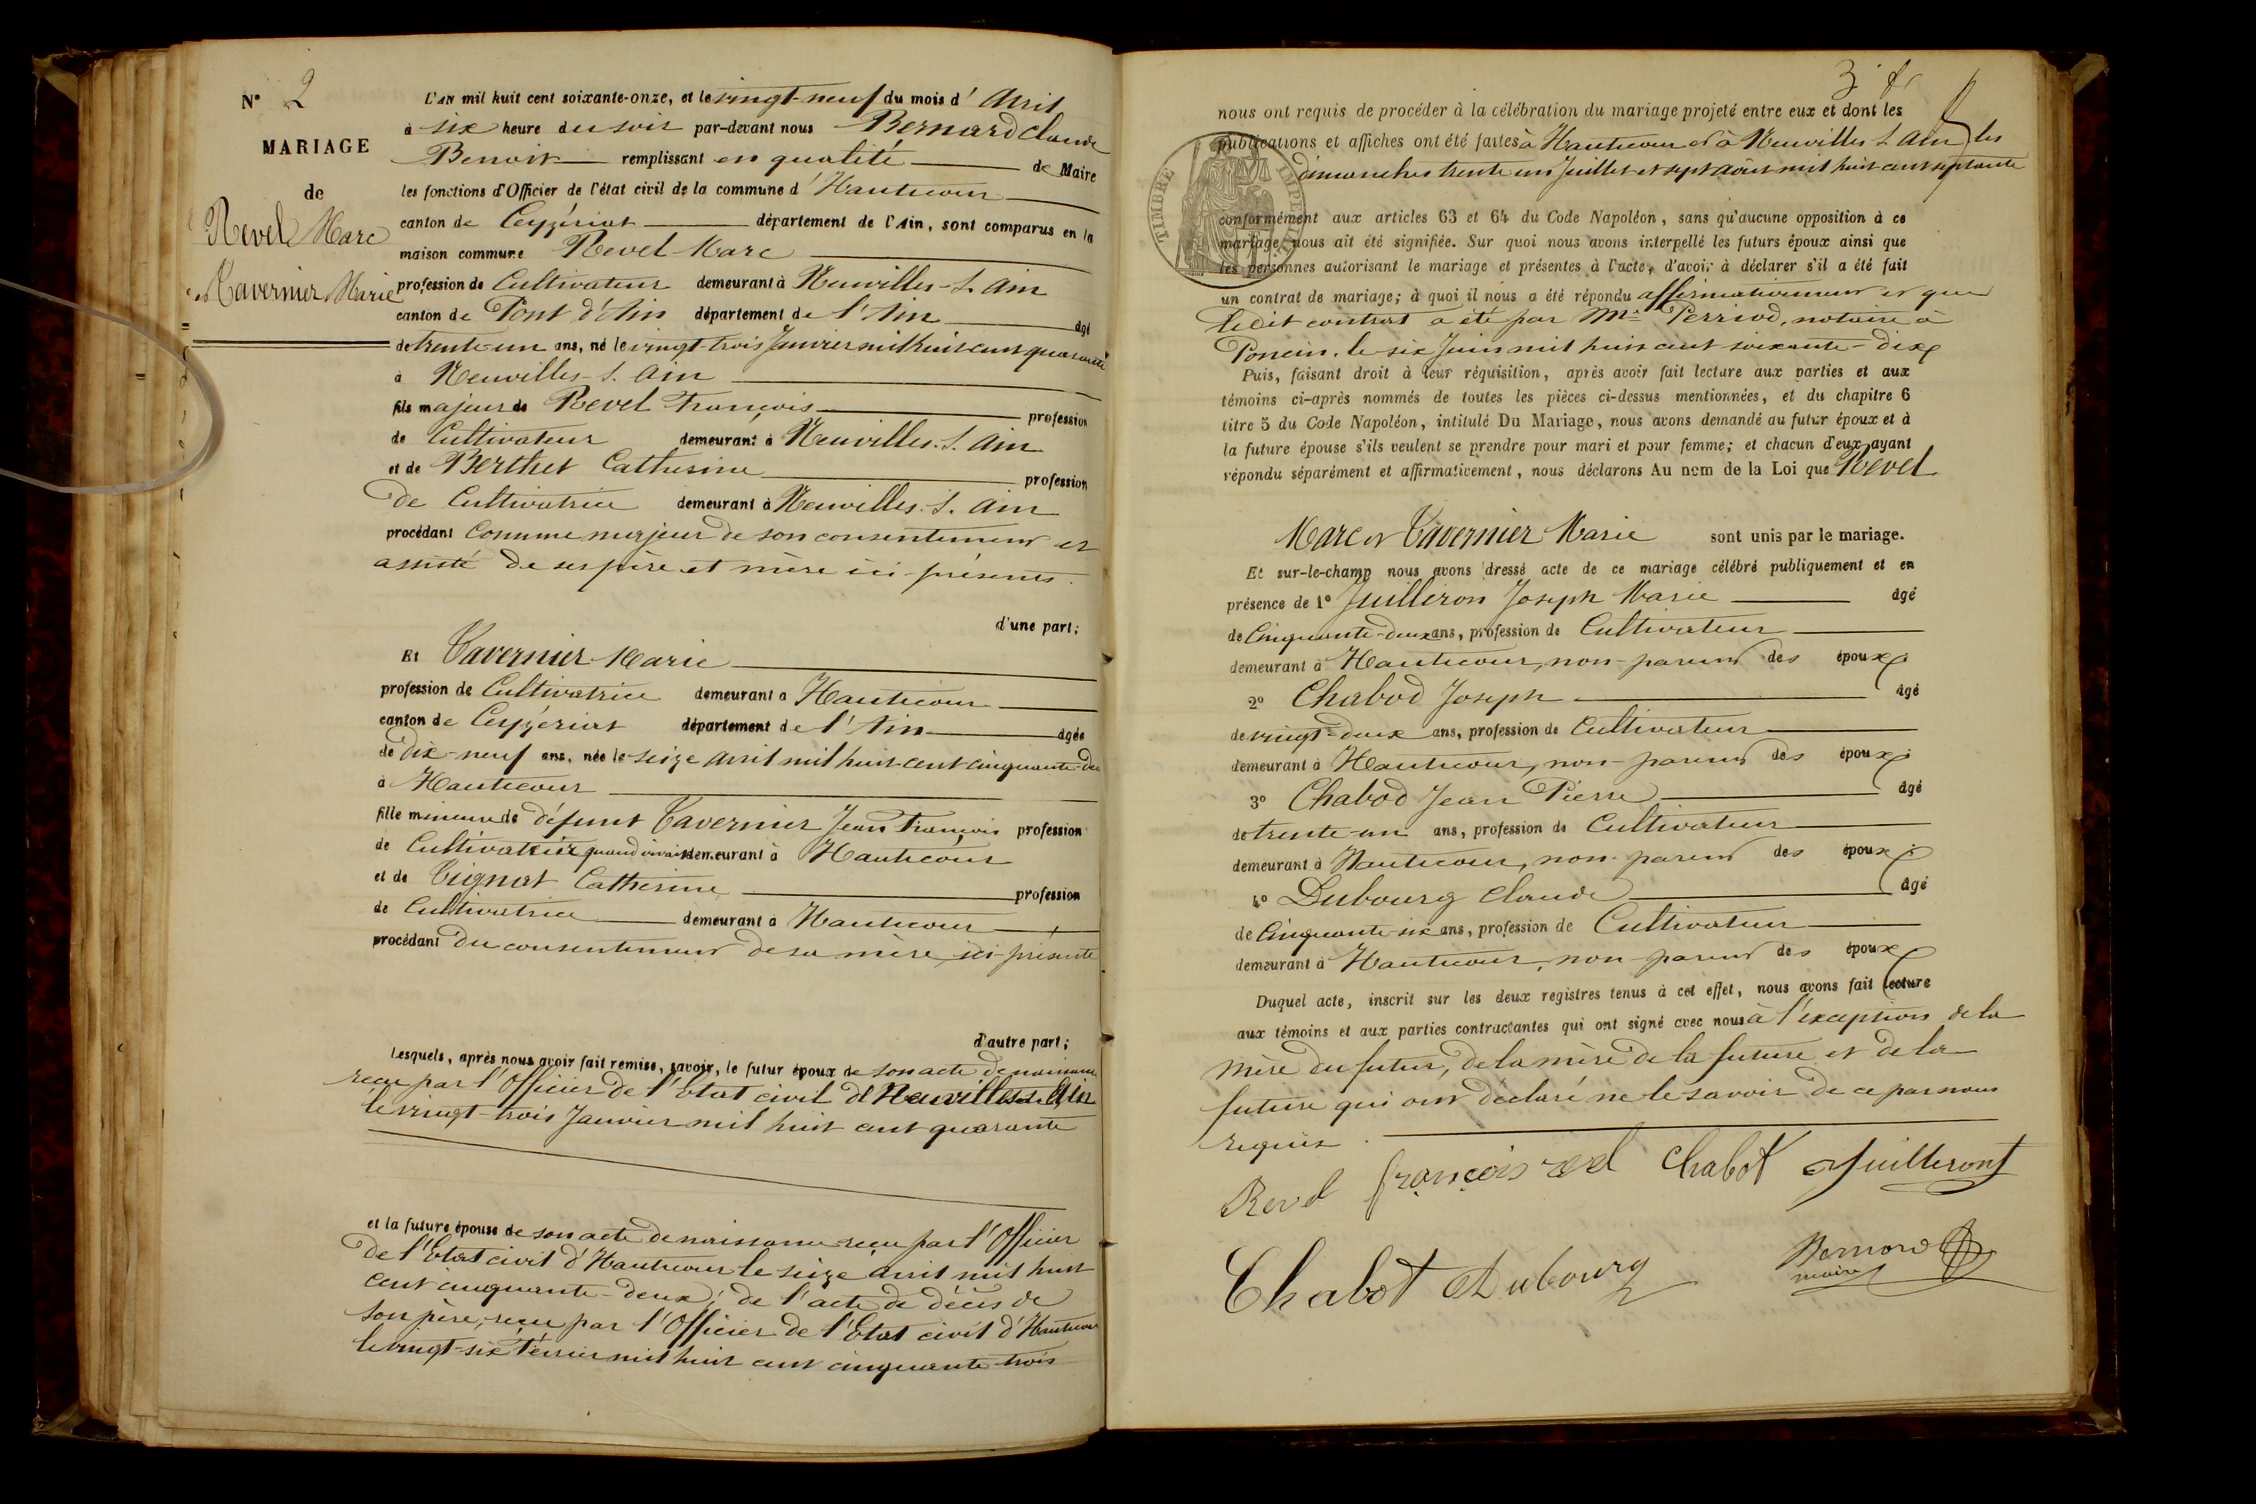 N° 2
MARIAGE
de
Revel Marc
et Tavernier Marie
L'AN mil huit cent soixante-onze, et le vingt-neuf du mois d'avril
à six heure du soir par-devant nous Bernard Claude
Benoit remplissant en qualité de Maire
les fonctions d'Officier de l'état civil de la commune d'Hautecour
canton de Ceyzériat département de l'Ain, sont comparus en la
maison commune Revel Marc
profession de Cultivateur demeurant à Neuville-s. Ain
canton de Pont d'Ain département de l'Ain âgé
de trente-un ans, né le vingt-trois Janvier mil huit cent quarante
à Neuville-s. Ain
fils majeur de Revel François profession
de Cultivateur demeurant à Neuville. s. Ain
et de Berthet Catherine profession
de Cultivatrice demeurant à Neuville. s. Ain
procédant comme majeur de son consentement et
assisté de ses père et mère ici présents.
d'une part;
Et Tavernier Marie
profession de Cultivatrice demeurant à Hautecour
canton de Ceyzériat département de l'Ain âgée
de dix-neuf ans, née le seize avril mil huit cent cinquante-deux
à Hautecour
fille mineure de défunt Tavernier Jean François profession
de Cultivateur quand vivait demeurant à Hautecour
et de Tignat Catherine profession
de Cultivatrice demeurant à Hautecour
procédant du consentement de sa mère, ici présente
d'autre part;
Lesquels, après nous avoir fait remise, savoir, le futur époux de son acte de naissance
reçu par l'Officier de l'Etat civil de Neuville s. Ain
le vingt-trois Janvier mil huit cent quarante
et la future épouse de son acte de naissance reçu par l'Officier
de l'Etat civil d'Hautecour le seize avril mil huit
cent cinquante-deux; de l'acte de décès de
son père, reçu par l'Officier de l'Etat civil d'Hautecour
le vingt-six février mil huit cent cinquante-trois
nous ont requis de procéder à la célébration du mariage projeté entre eux et dont les
publications et affiches ont été faites à Hautecour et à Neuville s. Ain les
dimanches trente un Juillet et sept août mil huit cent septante
TIMBRE IMPERIAL
conformément aux articles 63 et 64 du Code Napoléon, sans qu'aucune opposition à ce
mariage nous ait été signifiée. Sur quoi nous avons interpellé les futurs époux ainsi que
les personnes autorisant le mariage et présentes à l'acte, d'avoir à déclarer s'il a été fait
un contrat de mariage; à quoi il nous a été répondu affirmativement et que
ledit contrat a été par Me Perriod, notaire à
Poncin, le six Juin mil huit cent soixante-dix
Puis, faisant droit à leur réquisition, après avoir fait lecture aux parties et aux
témoins ci-après nommés de toutes les pièces ci-dessus mentionnées, et du chapitre 6
titre 5 du Code Napoléon, intitulé Du Mariage, nous avons demandé au futur époux et à
la future épouse s'ils veulent se prendre pour mari et pour femme; et chacun d'eux ayant
répondu séparément et affirmativement, nous déclarons Au nom de la Loi que Revel
Marc et Tavernier Marie sont unis par le mariage.
Et sur-le-champ nous avons dressé acte de ce mariage célébré publiquement et en
présence de 1° Juilliron Joseph Marie âgé
de Cinquante-deux ans, profession de Cultivateur
demeurant à Hautecour, non-parent des époux.
2° Chabod Joseph âgé
de vingt-deux ans, profession de Cultivateur
demeurant à Hautecour, non-parent des époux.
3° Chabod Jean Pierre âgé
de trente-un ans, profession de Cultivateur
demeurant à Hautecour, non-parent des époux.
4° Dubourg Claude âgé
de Cinquante-six ans, profession de Cultivateur
demeurant à Hautecour, non-parent des époux
Duquel acte, inscrit sur les deux registres tenus à cet effet, nous avons fait lecture
aux témoins et aux parties contractantes qui ont signé avec nous à l'exception de la
mère du futur, de la mère de la future et de la
future qui ont déclaré ne le savoir de ce par nous
requis.
Revel François revel Chabot Juilleront
Chabot Dubourg Bernard
maire